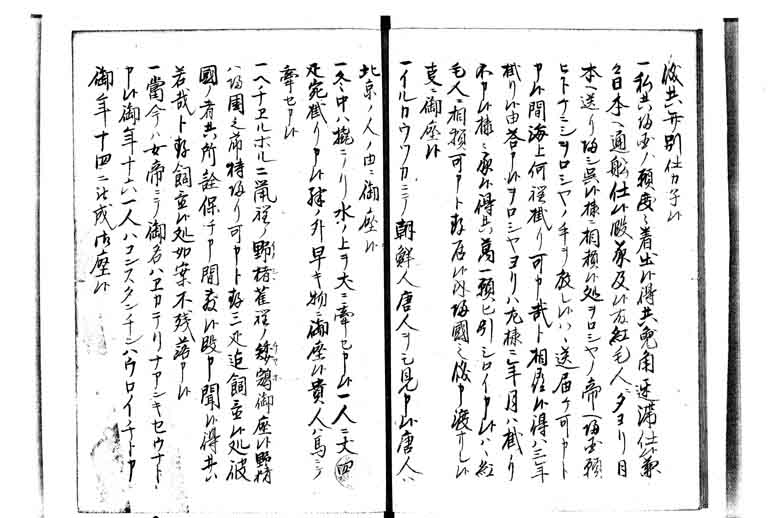 後共弁別仕カ子候
一私共帰国ノ願度々差出候得共兎角延滞仕候兼
々日本ヘ通船仕候段承及候故紅毛人ニタヨリ日
本ヘ送リ帰シ呉候様ニ相頼候処ヲロシヤノ帝ヘ帰国願
ヒトナシヲロシヤノ手ヲ放レ候ハヽ送届ケ可申ト
申候間海上何程掛リ可申哉ト相尋候得ハ三年
掛リ候由答申候ヲロシヤヨリハ左様ニ年月ハ掛リ
不申候様ニ承候得共萬一願ヒ引シロイ申候ハヽ紅
毛人ニ相頼可申ト存居候内帰國之儀申渡サレ候
事ニ御座候
一イルカウツカニテ朝鮮人唐人ヲモ見申候唐人ハ
北京ノ人ノ由ニ御座候
一冬中ハ橇ニノリ水ノ上ヲ犬ニ牽セ申候一人ニ犬四
疋宛掛リ申候殊ノ外早キ物ニ御座候貴人ハ馬ニテ
牽セ申候
一ヘチヱルホルニ鼠程ノ野猪雀程ノ矮鶏御座候野猪
ハ帰国之節持帰リ可申ト存三疋迠飼立候処彼
國ノ者共所詮保チ申間敷候段申聞候得共
若哉ト存飼立候処如案不残落申候
一當今ハ女帝ニテ御名ハヱカテリナアシキセウナト
申候御年十六一人ハコンスタンチンハウロイチト申
御年十四ニ被成御座候